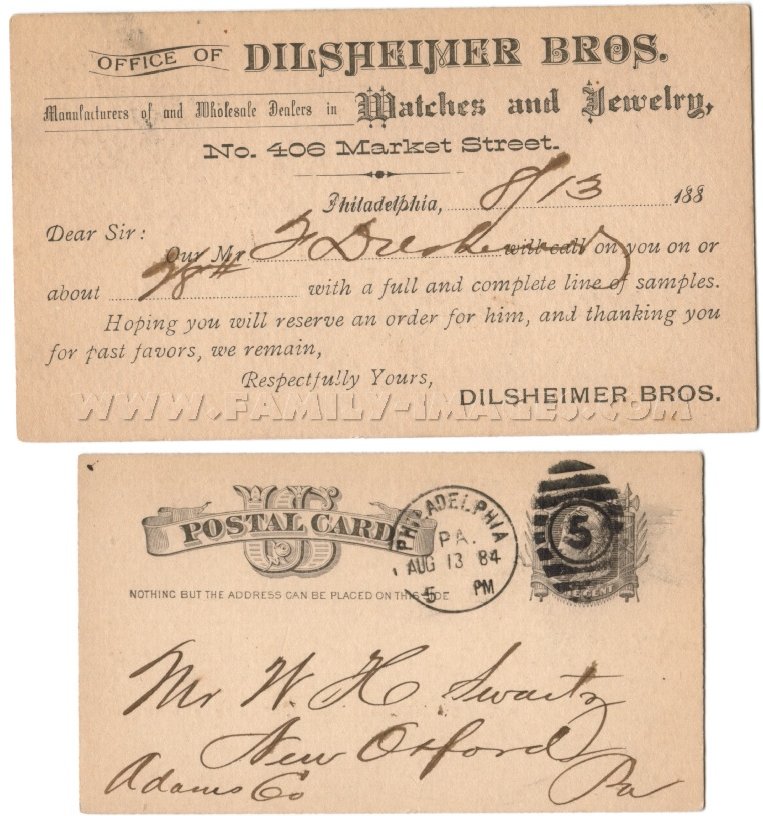 OFFICE OF DILSHEIMER BROS.
Manufacturers of and Wholesale Dealers in Watches and Jewelry,
No. 406 Market Street.
Philadelphia, 8/13 188
Dear Sir:
Our Mr F Dilsheimer will call on you on or
about with a full and complete line of samples.
Hoping you will reserve an order for him, and thanking you
for past favors, we remain,
Respectfully Yours,
DILSHEIMER BROS.
WWW.FAMILY-IMAGES.COM
US
POSTAL CARD
NOTHING BUT THE ADDRESS CAN BE PLACED ON THIS SIDE
PHILADELPHIA
PA.
AUG 13 84
5 PM
5
ONE CENT
Mr W. H Swartz
New Oxford
Adams Co Pa